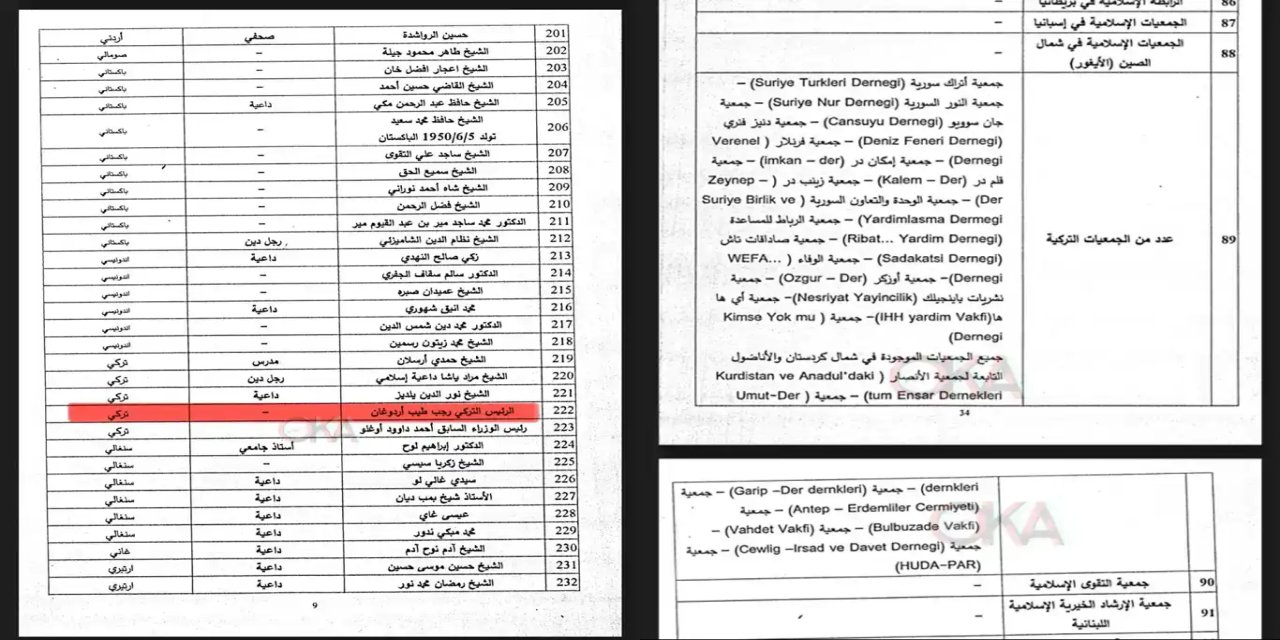 201 حسين الرواشدة صحفي أردني
202 الشيخ طاهر محمود جيلة – صومالي
203 الشيخ اعجاز افضل خان – باكستاني
204 الشيخ القاضي حسين أحمد – باكستاني
205 الشيخ حافظ عبد الرحمن مكي داعية باكستاني
206 الشيخ حافظ محمد سعيد
تولد 1950/6/5 الباكستان – باكستاني
207 الشيخ ساجد علي التقوى – باكستاني
208 الشيخ سميع الحق – باكستاني
209 الشيخ شاه أحمد نوراني – باكستاني
210 الشيخ فضل الرحمن – باكستاني
211 الدكتور محمد ساجد مير بن عبد القيوم مير – باكستاني
212 الشيخ نظام الدين الشاميزئي رجل دين باكستاني
213 زكي صالح النهدي داعية اندونيسي
214 الدكتور سالم سقاف الجفري – اندونيسي
215 الشيخ عميدان صبره – اندونيسي
216 محمد انيق شهوري داعية اندونيسي
217 الدكتور محمد دين شمس الدين – اندونيسي
218 الشيخ محمد زيتون رسمين – اندونيسي
219 الشيخ حمدي أرسلان مدرس تركي
220 الشيخ مراد ياشا داعية إسلامي رجل دين تركي
221 الشيخ نور الدين يلديز داعية تركي
222 الرئيس التركي رجب طيب أردوغان – تركي
223 رئيس الوزراء السابق أحمد داوود أوغلو تركي
224 الدكتور إبراهيم لوح أستاذ جامعي سنغالي
225 الشيخ زكريا سيسي – سنغالي
226 سيدي غالي لو داعية سنغالي
227 الأستاذ شيخ بمب ديان داعية سنغالي
228 عيسى غاي داعية سنغالي
229 محمد مبكي ندور داعية سنغالي
230 الشيخ آدم نوح آدم داعية غاني
231 الشيخ حسين موسى حسين داعية ارتيري
232 الشيخ رمضان محمد نور داعية ارتيري
9
OKA
86 الرابطة الإسلامية في بريطانيا –
87 الجمعيات الإسلامية في إسبانيا –
88 الجمعيات الإسلامية في شمال
الصين (الأيغور) –
89 عدد من الجمعيات التركية
جمعية أتراك سورية (Suriye Turkleri Dernegi) –
جمعية النور السورية (Suriye Nur Dernegi) – جمعية
جان سوويو (Cansuyu Dernegi) – جمعية دنيز فنري
(Deniz Feneri Dernegi) – جمعية فرنلار (Verenel
Dernegi) – جمعية إمكان در (imkan – der) – جمعية
قلم در (Kalem – Der) – جمعية زينب در (Zeynep –
Der) – جمعية الوحدة والتعاون السورية (Suriye Birlik ve
Yardimlasma Dermegi) – جمعية الرباط للمساعدة
(Ribat... Yardim Dernegi) – جمعية صاداقات تاش
(Sadakatsi Dernegi) – جمعية الوفاء (WEFA...
Dernegi) – جمعية أوزكر (Ozgur – Der) – جمعية
نشريات يايينجيلك (Nesriyat Yayincilik) – جمعية أي ها
ها (IHH yardim Vakfi) – جمعية (Kimse Yok mu
Dernegi)
جميع الجمعيات الموجودة في شمال كردستان والأناضول
التابعة لجمعية الأنصار (Kurdistan ve Anadul'daki
tum Ensar Dernekleri) – جمعية (Umut-Der
34
OKA
dernkleri) – جمعية (Garip –Der dernkleri) – جمعية
(Antep – Erdemliler Cermiyeti) – جمعية
(Bulbuzade Vakfi) – جمعية (Vahdet Vakfi) –
جمعية (Cewlig –Irsad ve Davet Dernegi) – جمعية
(HUDA-PAR)
OKA
90 جمعية التقوى الإسلامية –
91 جمعية الإرشاد الخيرية الإسلامية
اللبنانية –